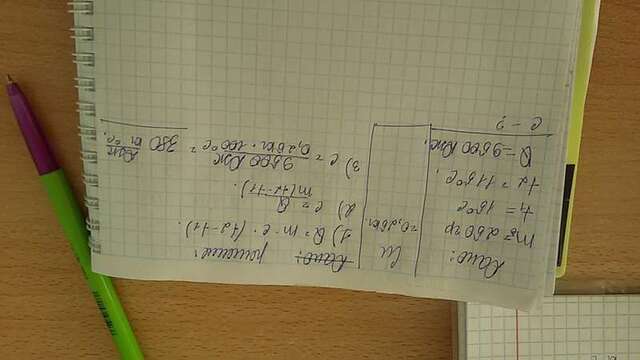 Дано:
m = 250 гр
t1 = 15°C
t2 = 115°C.
Q = 9500 Дж.
c - ?
Си
= 0,25 кг.
Дано: решение:
1) Q = m · c · (t2 - t1).
2) c = Q / m(t2 - t1).
3) c = 9500 Дж / 0,25 кг · 100°C = 380 Дж / кг °C.